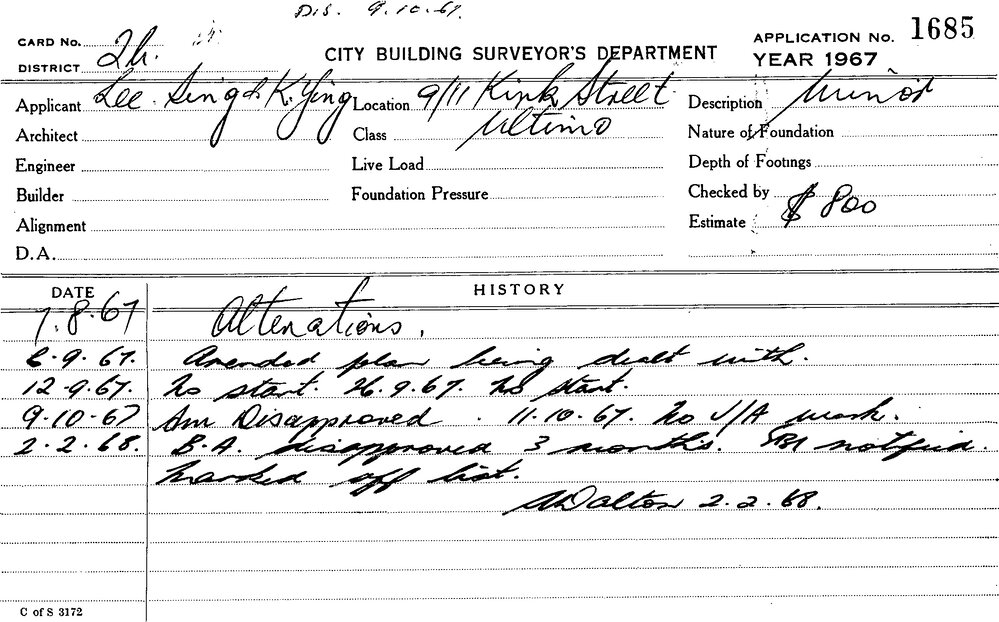 Dis. 9.10.67.
CARD No.
DISTRICT 2h.
CITY BUILDING SURVEYOR'S DEPARTMENT
APPLICATION No. 1685
YEAR 1967
Applicant Lee Sing & K. Ying Location 9/11 Kink Street Description Minor
Architect Class Ultimo Nature of Foundation
Engineer Live Load Depth of Footings
Builder Foundation Pressure Checked by
Alignment Estimate $ 800
D.A.
DATE HISTORY
7.8.67 Alterations.
6.9.67. Amended plan being dealt with.
12.9.67. No start. 26.9.67. No start.
9.10.67 Am Disapproved. 11.10.67. No V/A work.
2.2.68. B.A. disapproved 3 months. notified.
Marked off list.
ADalton 2.2.68.
C of S 3172